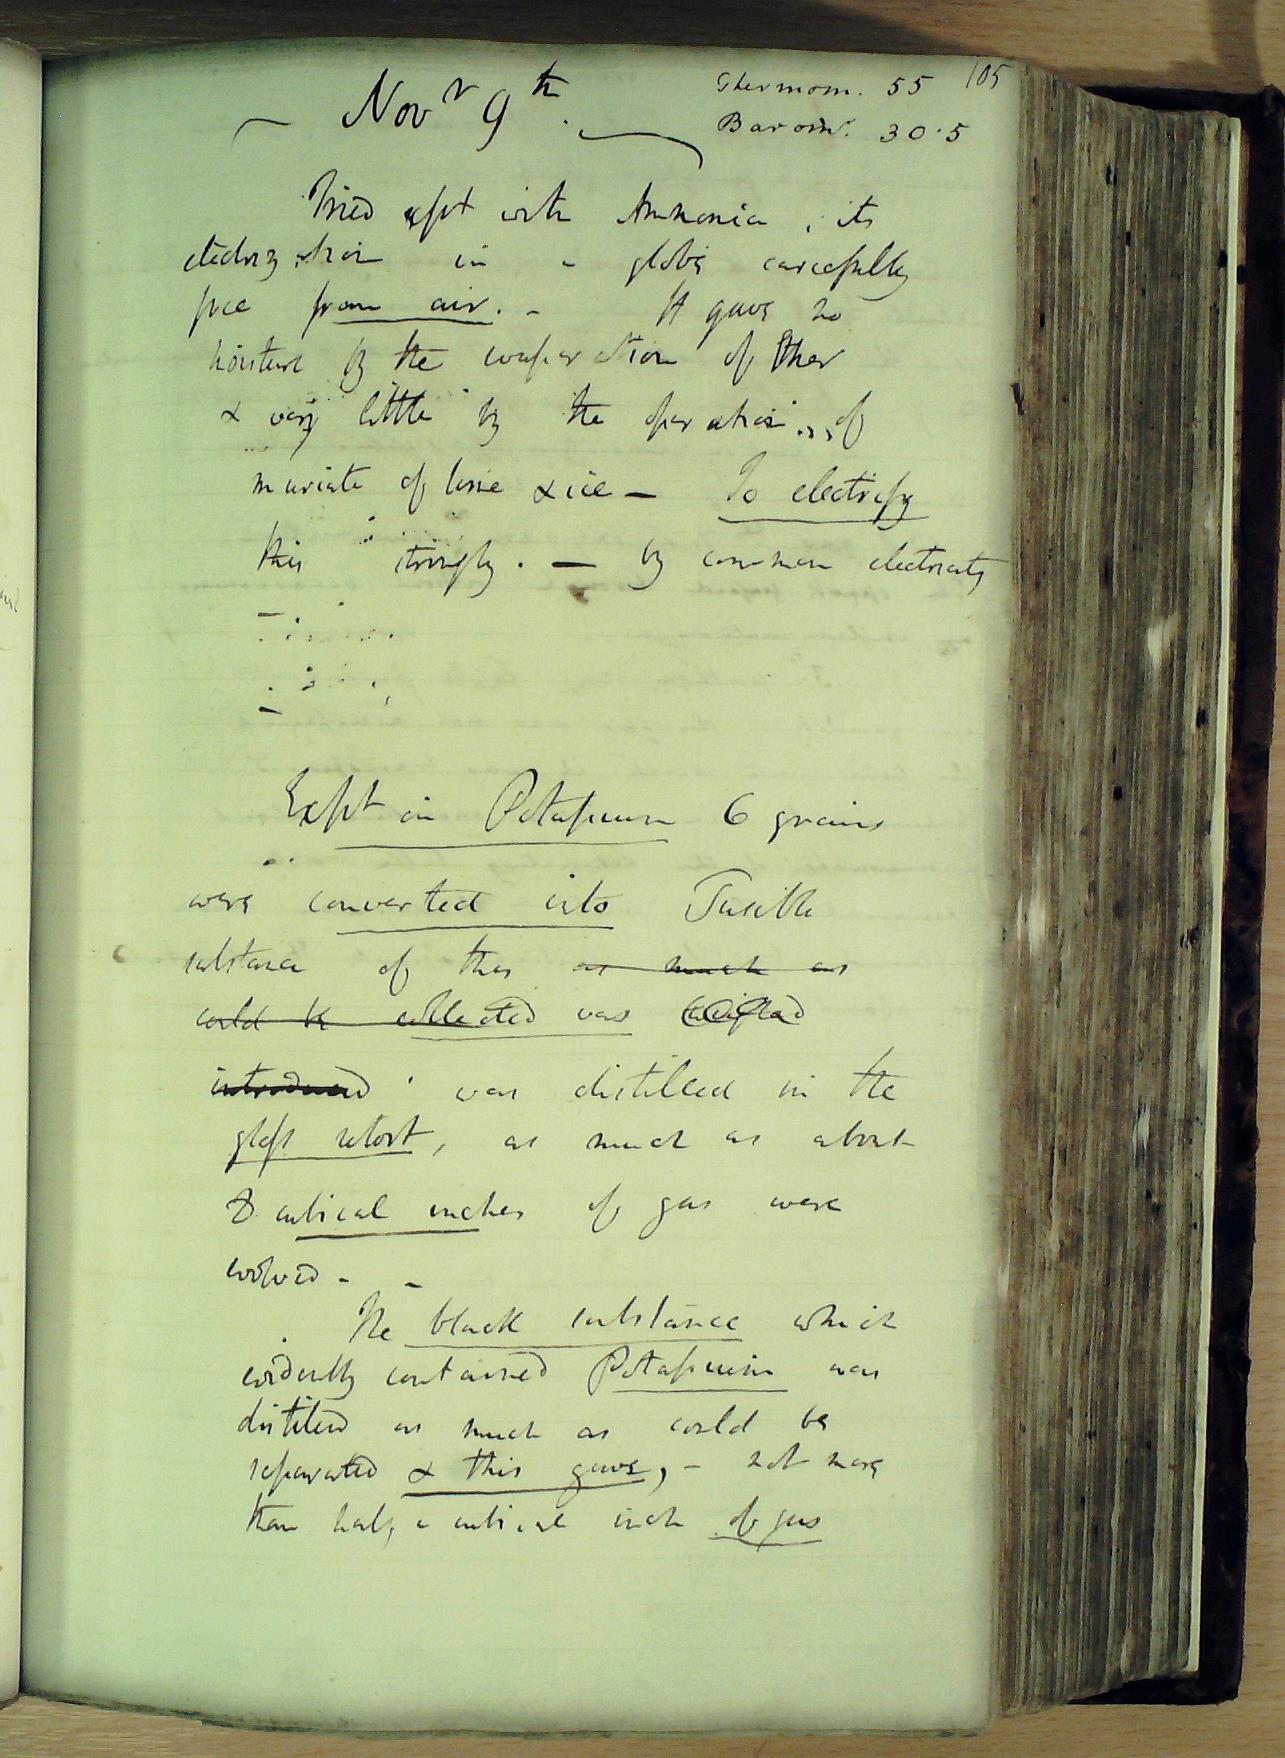 Thermom. 55 105
Novr 9th.
Baromr. 30.5
Tried expt with Ammonia, its
electrization in a globe carefully
free from air. - It gave no
moisture by the evaporation of Ether
& very little by the operation of
muriate of lime & ice - To electrify
this strongly. - by common electricity
Expt on Potassium 6 grains
were converted into Fusible
substance of this as much as
could be collected was weighed
introduced was distilled in the
glass retort, as much as about
8 cubical inches of gas were
evolved - -
The black substance which
evidently contained Potassium was
distilled as much as could be
separated & this gave, - not more
than half a cubical inch of gas